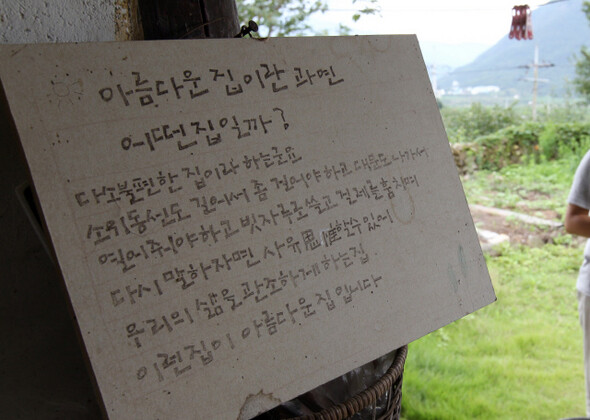 아름다운 집이란 과연
어떤집일까?
다소불편한 집이라 하는군요
소위동선도 길어서 좀 걸어야하고 대문도 나가서
열어주어야하고 빗자루로쓸고 걸레를훔치며
다시 말하자면 사유思惟할수있어
우리의 삶을관조하게 하는집
이런집이 아름다운집입니다